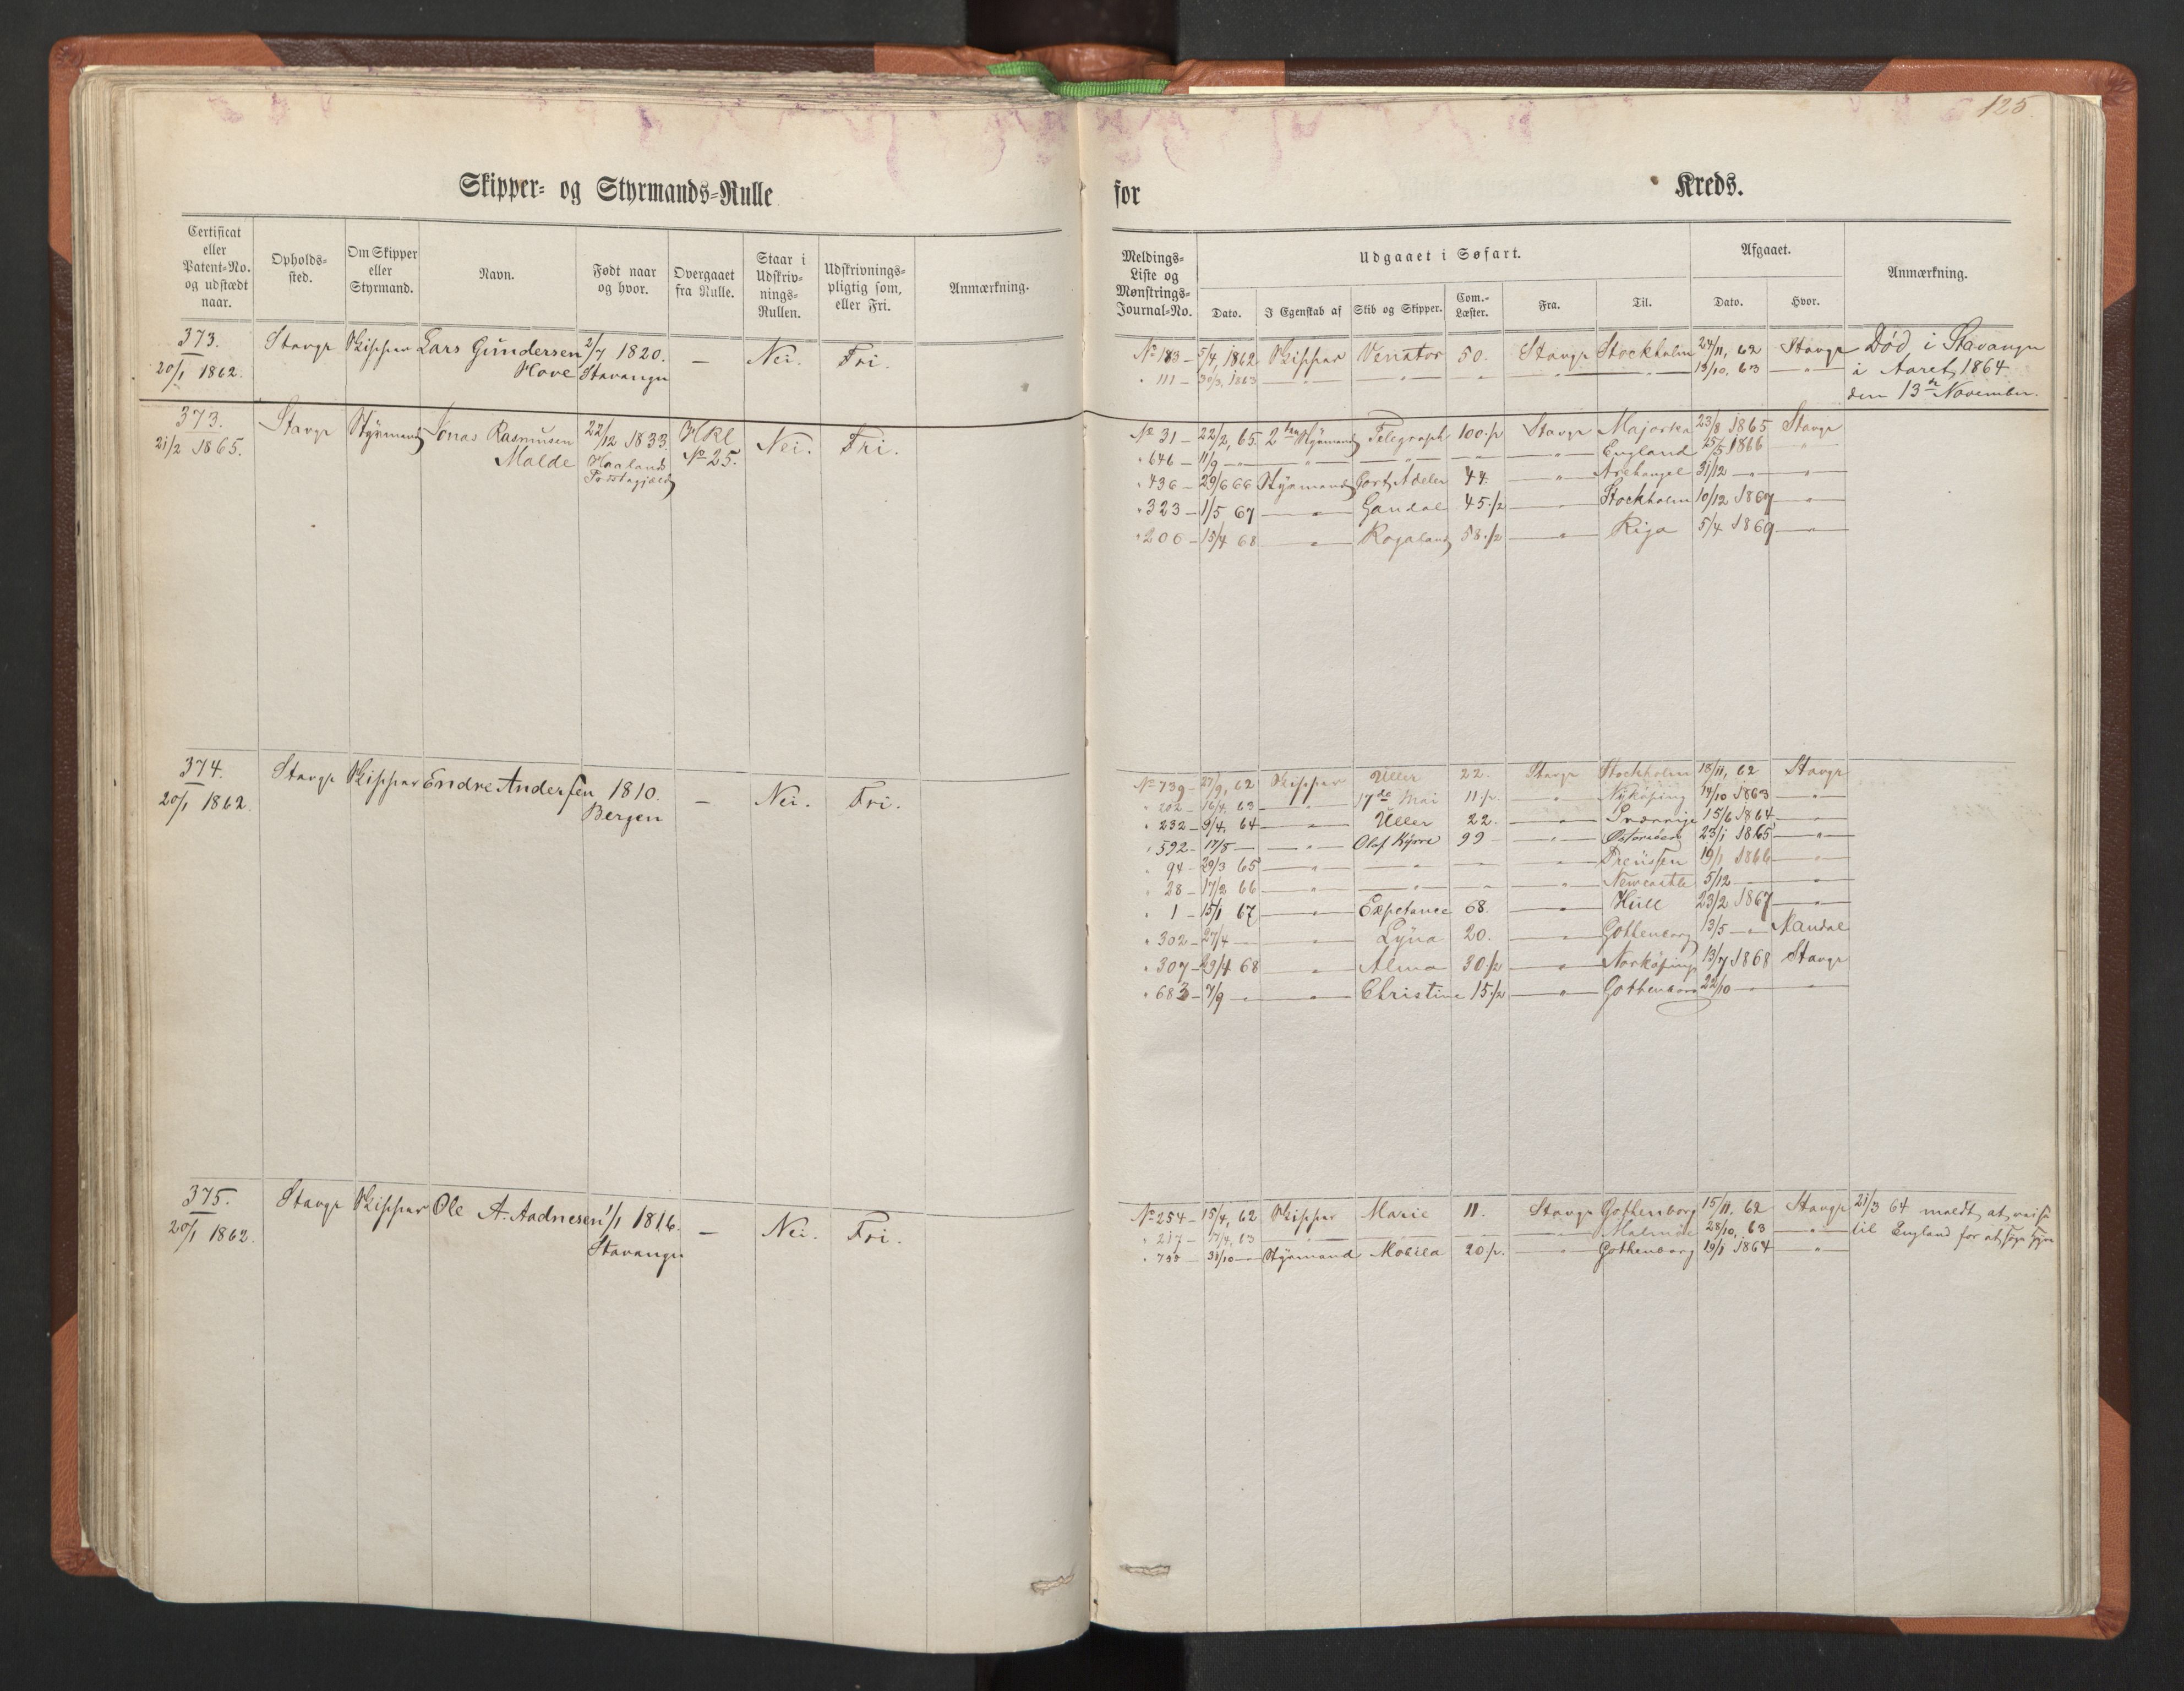 125.
Skipper- og Styrmands-Rulle for Kreds.
Certificat eller Patent-No. og udstædt naar. Opholds-sted. Om Skipper eller Styrmand. Navn. Født naar og hvor. Overgaaet fra Rulle. Staar i Udskriv-nings-Rullen. Udskrivnings-pligtig som, eller Fri. Anmærkning.
Meldings-Liste og Mønstrings-Journal-No. Udgaaet i Søfart. Afgaaet. Anmærkning.
Dato. I Egenskab af Skib og Skipper. Com.-Læster. Fra. Til. Dato. Hvor.
373. Stavgr Skipper Lars Gundersen 2/7 1820. — Nei. Fri.
20/1 1862. Hove Stavanger
№ 183 — 5/4, 1862 Skipper Venator 50. Stavgr Stockholm 24/11, 62 Stavgr Død i Stavanger
" 111 — 30/3, 1863 — " — — " — — " — 13/10, 63 — " — i Aaret 1864
den 13de November.
373. Stavgr Styrmand Jonas Rasmusen 22/12 1833. HRl Nei. Fri.
21/2 1865. Malde Haalands № 25.
Præstegjæld
№ 31 — 22/2, 65. 2den Styrmand Telegraph 100 1/2 Stavgr Majorka 23/8 1865 Stavgr
" 646 — 11/9 — " — — " — — " — — " — England 25/5 1866 "
" 436 — 29/6 66 Styrmand Cort Adeler 44. — " — Archangel 31/12 — " — — " —
" 323 — 1/5 67 — " — Gandal 45 1/2 — " — Stockholm 10/12 1867 — " —
" 206 — 15/4 68 — " — Rogaland 58 1/2 — " — Riga 5/4 1869 — " —
374. Stavgr Skipper Endre Andersen 1810. — Nei. Fri.
20/1 1862. Bergen
№ 739 — 27/9, 62 Skipper Uller 22. Stavgr Stockholm 18/11, 62 Stavgr
" 202 — 16/4, 63 — " — 17de Mai 11 1/2 — " — Nykøping 14/10 1863 — " —
" 232 — 9/4, 64 — " — Uller 22. — " — Sverrige 15/6 1864 — " —
" 592 — 17/8 — — " — Olaf Kyrre 99 — " — Østersøen 23/1 1865 — " —
" 94 — 29/3 65 — " — — " — — " — Preussen 19/1 1866 — " —
" 28 — 17/2 66 — " — — " — — " — Newcastle 5/12 — — " —
" 1 — 15/1 67 — " — Expetance 68. — " — Hull 23/2 1867 — " —
" 302 — 27/4 — — " — Lyna 20. — " — Gothenborg 13/5 — " — Mandal
" 307 — 29/4 68 — " — Alma 30 1/2 — " — Norkøping 13/7 1868 Stavgr
" 683 — 7/9 — " — — " — Christine 15 1/2 — " — Gothenborg 22/10 — " —
375. Stavgr Skipper Ole A. Aadnesen 1/1 1816. — Nei. Fri.
20/1 1862. Stavanger
№ 254 — 15/4, 62 Skipper Marie 11. Stavgr Gothenborg 15/11, 62 Stavgr 21/3 64 meldt at reise
" 217 — 17/4, 63 — " — — " — — " — Malmø 28/10, 63 — " — til England for at søge Hyre
" 793 — 31/10 — Styrmand Mobila 20 1/2 — " — Gothenborg 19/1 1864 — " —